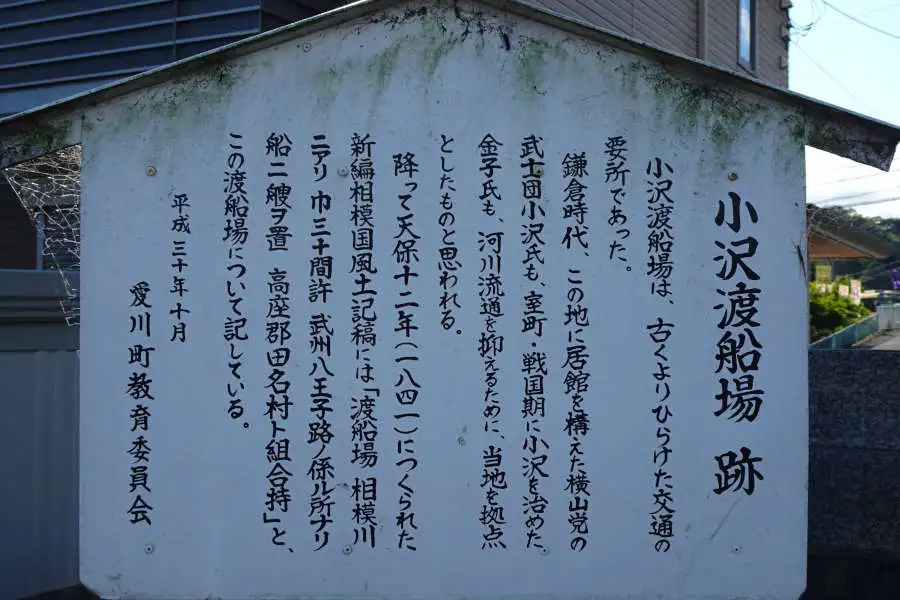 小沢渡船場 跡
小沢渡船場は、古くよりひらけた交通の
要所であった。
鎌倉時代、この地に居館を構えた横山党の
武士団小沢氏も、室町・戦国期に小沢を治めた
金子氏も、河川流通を抑えるために、当地を拠点
としたものと思われる。
降って天保十二年(一八四一)につくられた
新編相模国風土記稿には「渡船場 相模川
ニアリ 巾三十間許 武州八王子路ノ係ル所ナリ
船二艘ヲ置 高座郡田名村ト組合持」と、
この渡船場について記している。
平成三十年十月
愛川町教育委員会